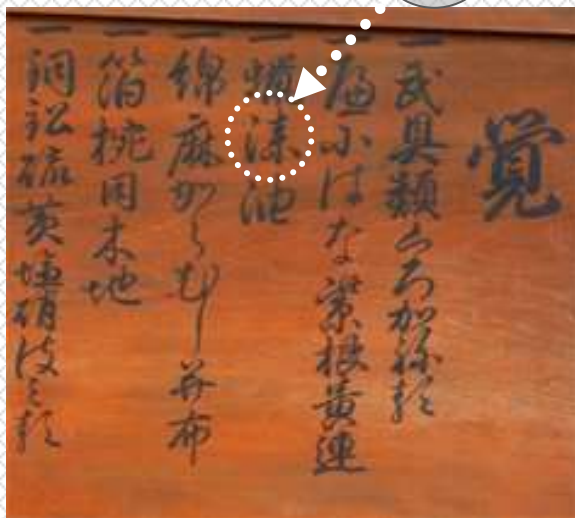 覚
一武具類くろ加祢類
一扁尓はな紫根黄連
一蝋漆油
一綿麻からむし并布
一箔椀同木地
一銅鈆硫黄塩硝之類